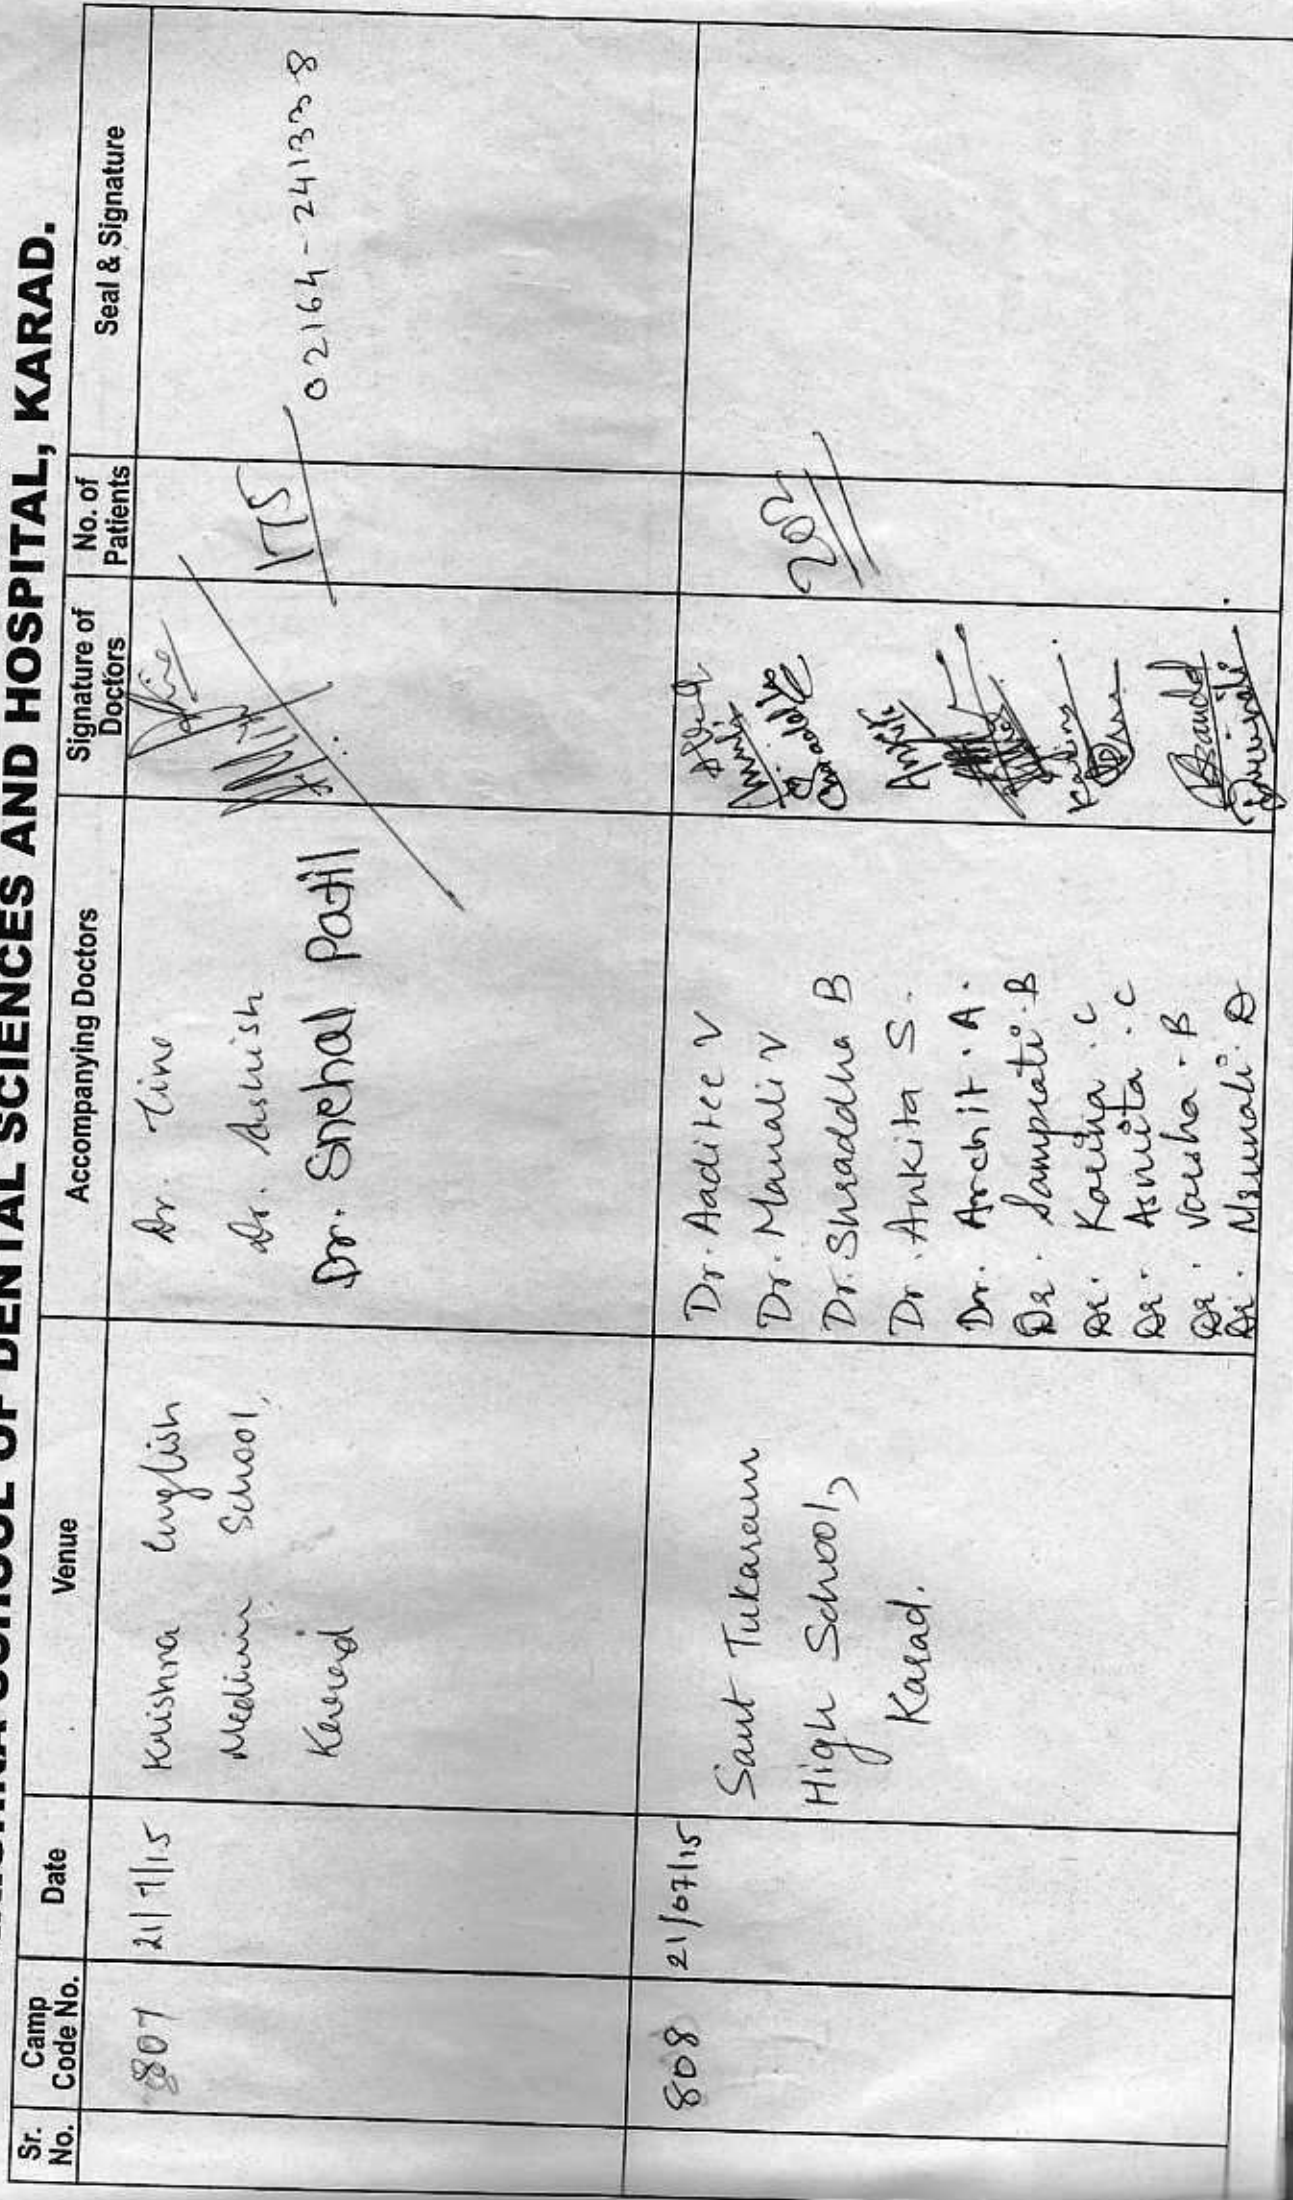 SCHOOL OF DENTAL SCIENCES AND HOSPITAL, KARAD.
Sr. No.
Camp Code No.
Date
Venue
Accompanying Doctors
Signature of Doctors
No. of Patients
Seal & Signature
807
21/7/15
Krishna English
Medium School,
Karad
Dr. Tino
Dr. Ashish
Dr. Snehal Patil
175
02164-241338
808
21/07/15
Sant Tukaram
High School,
Karad.
Dr. Aaditee V
Dr. Manali V
Dr. Shraddha B
Dr. Ankita S.
Dr. Archit. A.
Dr. Samprati. B
Dr. Karina. C
Dr. Asmita. C
Dr. Varsha. B
Dr. Mrunali. D
Ankita
202